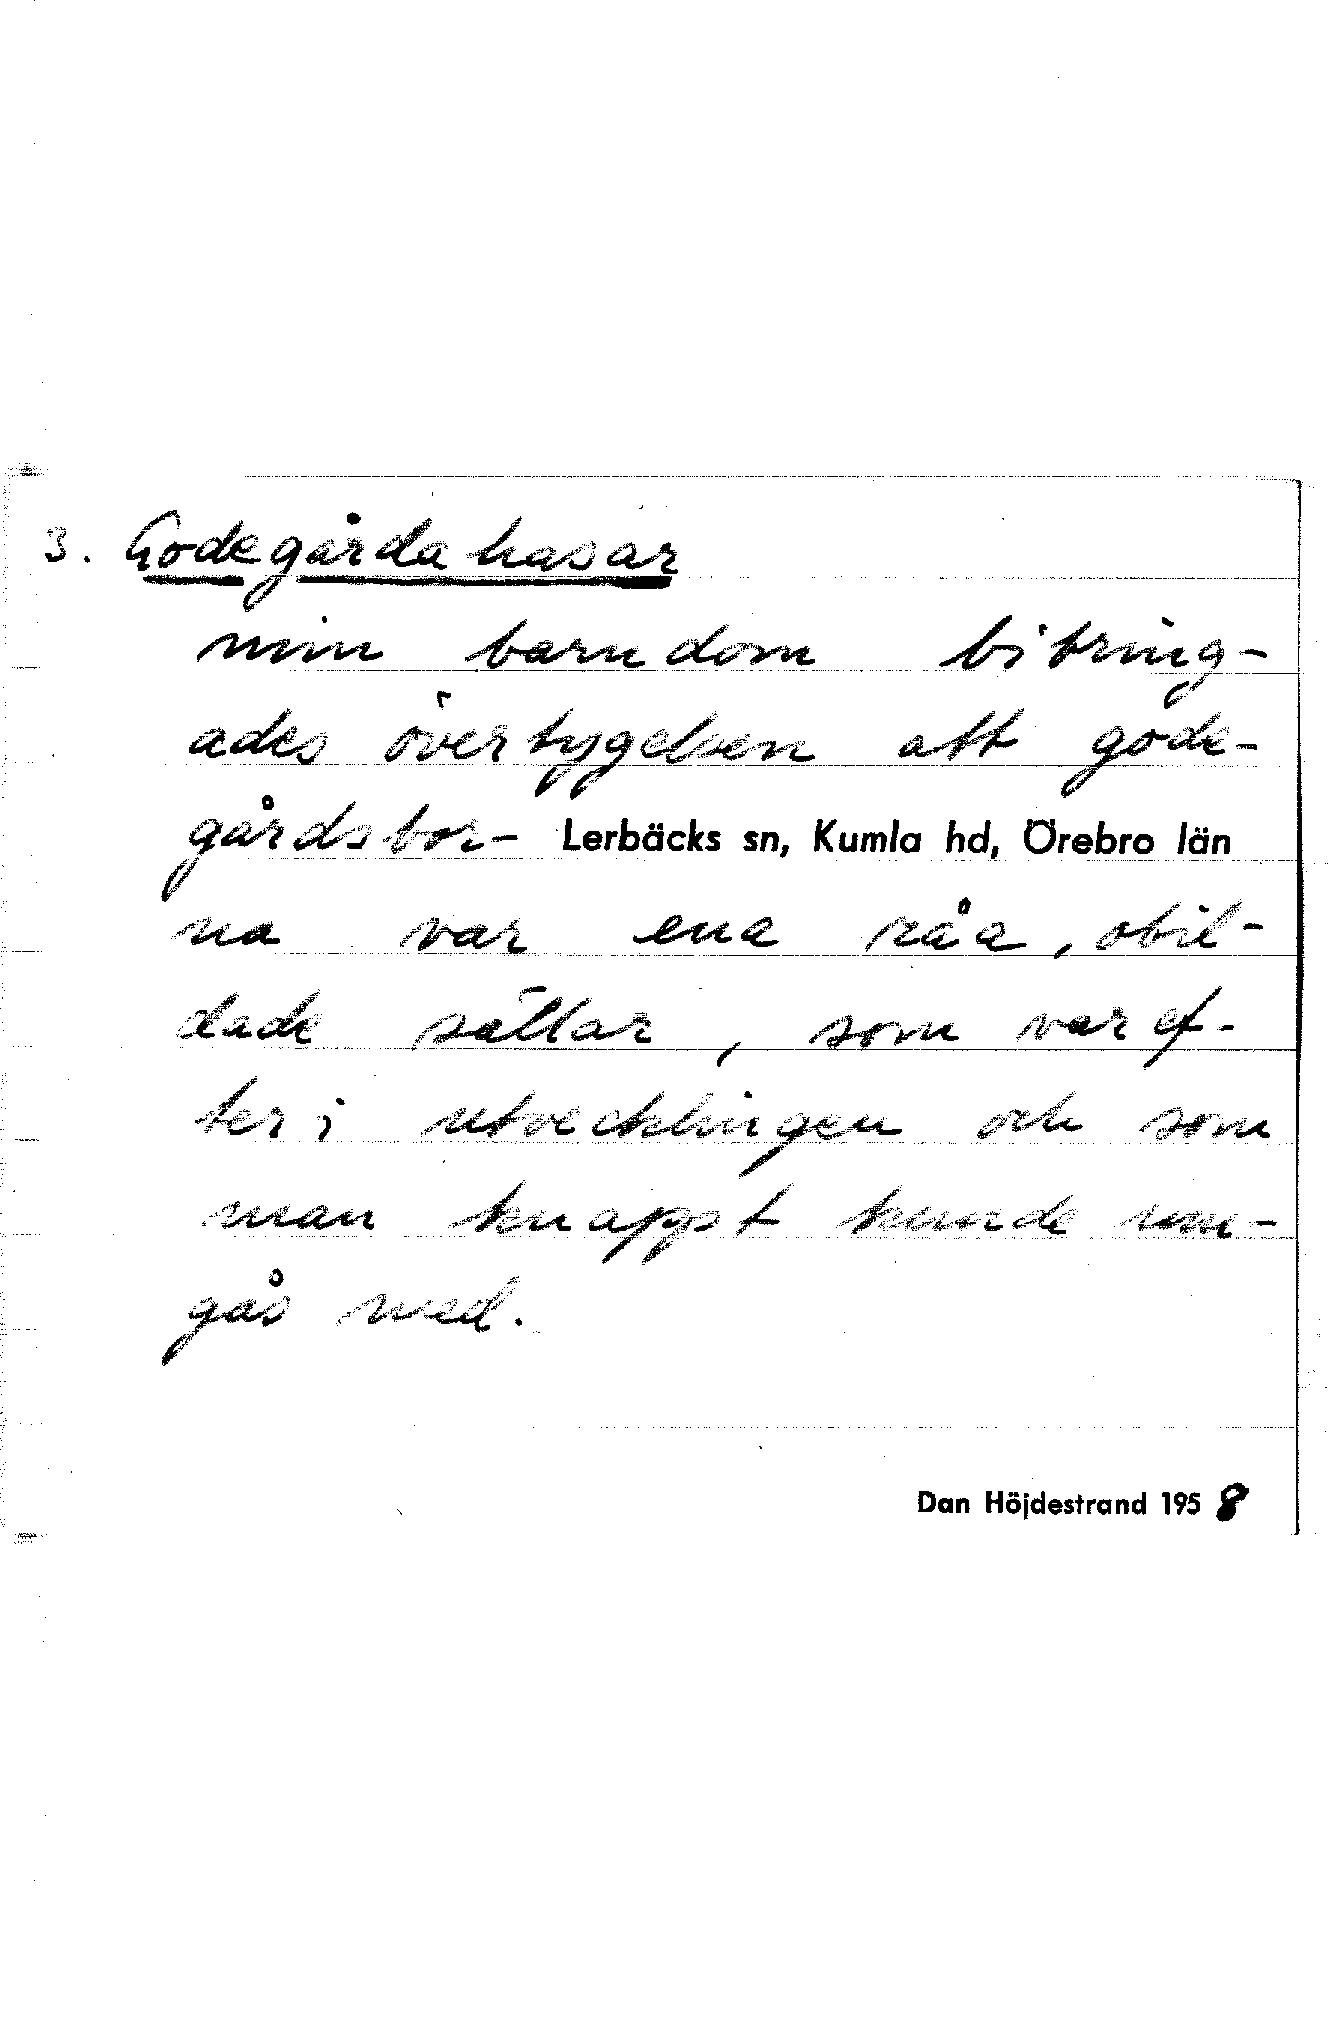 3. Godegårdahasar
min barndom bibring-
ades övertygelsen att gode-
gårdsbor- Lerbäcks sn, Kumla hd, Örebro län
na var ena råa, obil-
dade sällar, som var ef-
ter i utvecklingen och som
man knappst kunde um-
gås med.
Dan Höjdestrand 1958